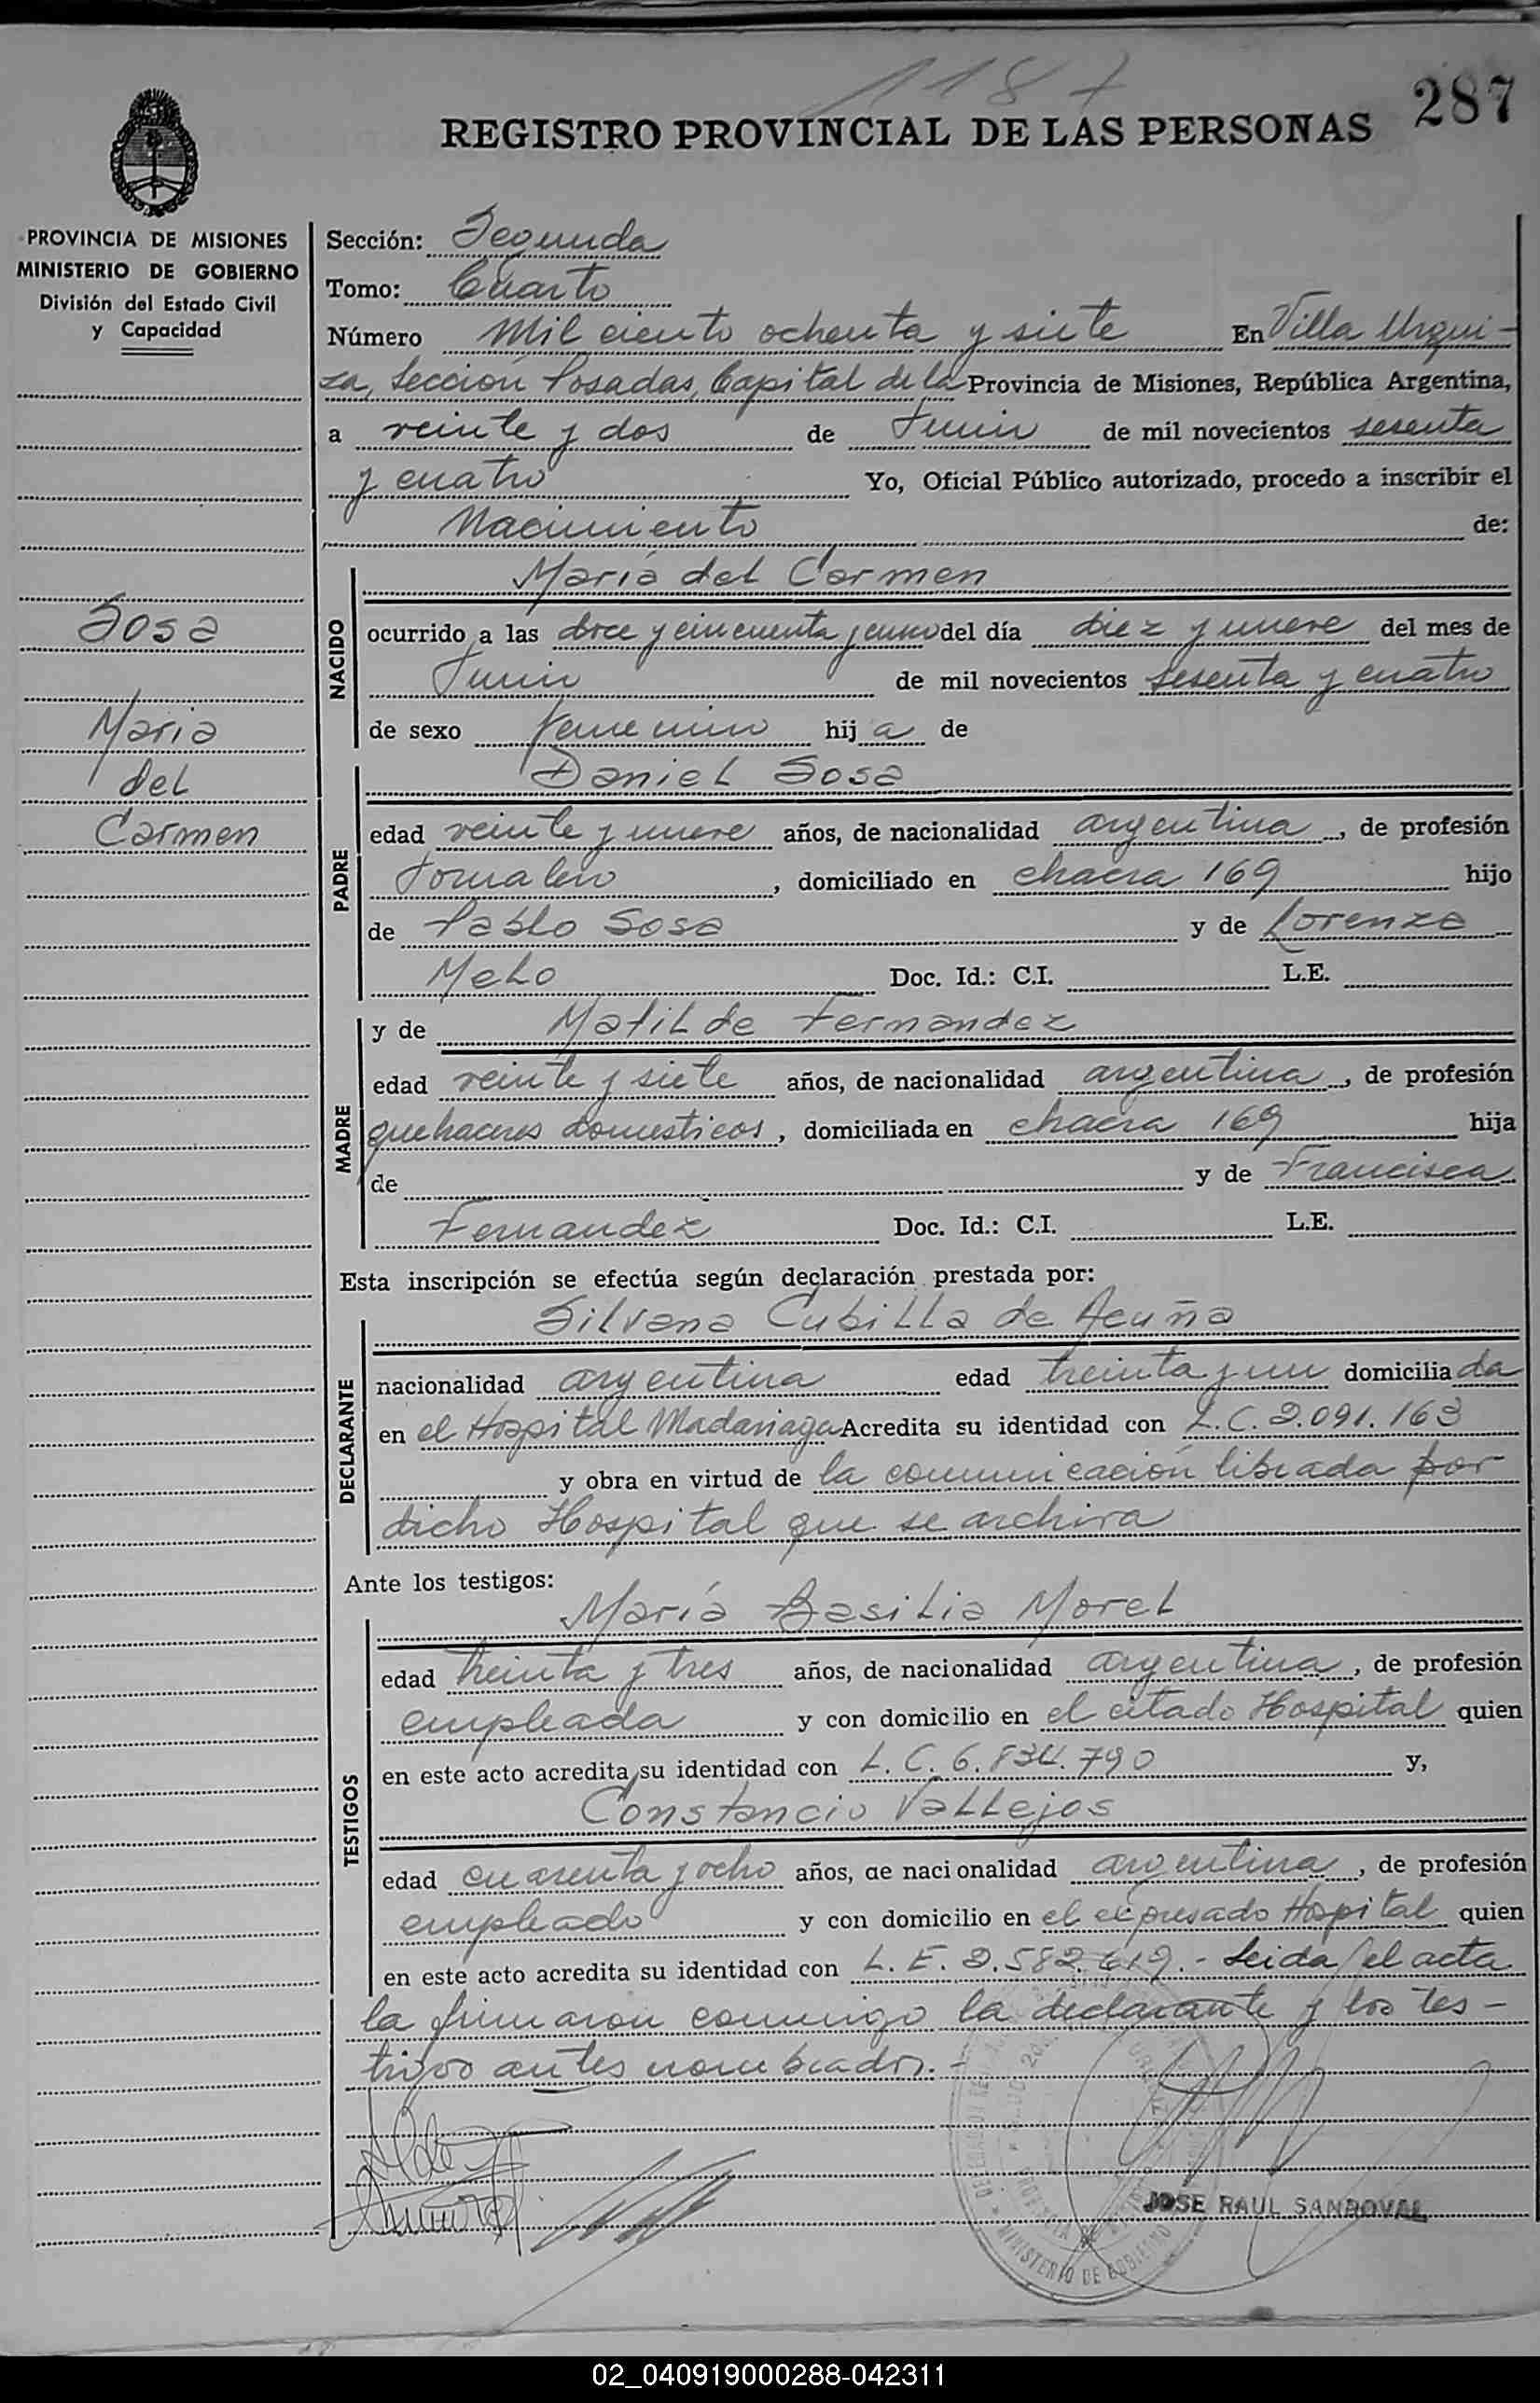 1187
287
REGISTRO PROVINCIAL DE LAS PERSONAS
PROVINCIA DE MISIONES
MINISTERIO DE GOBIERNO
División del Estado Civil
y Capacidad
Sosa
Maria
del
Carmen
Sección: Segunda
Tomo: Cuarto
Número Mil ciento ochenta y siete En Villa Urqui-
za, Sección Posadas, Capital de la Provincia de Misiones, República Argentina,
a veinte y dos de Junio de mil novecientos sesenta
y cuatro Yo, Oficial Público autorizado, procedo a inscribir el
Nacimiento de:
NACIDO
María del Carmen
ocurrido a las doce y cincuenta y cinco del día diez y nueve del mes de
Junio de mil novecientos sesenta y cuatro
de sexo femenino hij a de
PADRE
Daniel Sosa
edad veinte y nueve años, de nacionalidad argentina, de profesión
Jornalero, domiciliado en chacra 169 hijo
de Pablo Sosa y de Lorenza
Melo Doc. Id.: C.I. L.E.
MADRE
y de Matilde Fernandez
edad veinte y siete años, de nacionalidad argentina, de profesión
quehaceres domesticos, domiciliada en chacra 169 hija
de y de Francisca
Fernandez Doc. Id.: C.I. L.E.
Esta inscripción se efectúa según declaración prestada por:
DECLARANTE
Silvana Cubilla de Acuña
nacionalidad argentina edad treinta y un domicilia da
en el Hospital Madariaga Acredita su identidad con L.C. 2.091.163
y obra en virtud de la comunicación librada por
dicho Hospital que se archiva
Ante los testigos:
TESTIGOS
María Basilia Morel
edad treinta y tres años, de nacionalidad argentina, de profesión
empleada y con domicilio en el citado Hospital quien
en este acto acredita su identidad con L.C. 6.834.790 y,
Constancio Vallejos
edad cuarenta y ocho años, de nacionalidad argentina, de profesión
empleado y con domicilio en el expresado Hospital quien
en este acto acredita su identidad con L.E. 2.582.619.- Leida el acta
la firmaron conmigo la declarante y los tes-
tigos antes nombrados.-
JOSE RAUL SANDOVAL
MINISTERIO DE GOBIERNO
02_040919000288-042311